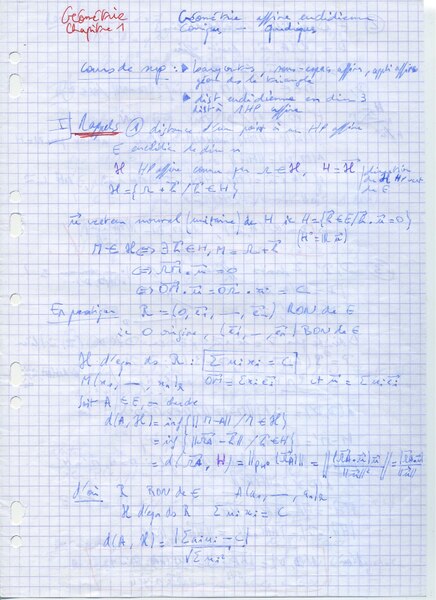 Géométrie Géométrie affine euclidienne
Chapitre 1 Coniques - Quadriques
cours de sup : • barycentres, sous-espaces affines, appli affines
géom ds le triangle
• dist euclidienne en dim 3
dist à 1 HP affine
I) Rappels a) distance d'un point à un HP affine
E euclidien de dim n
ℋ HP affine connu par Ω ∈ ℋ, H = direction
ℋ = {Ω + h⃗ / h⃗ ∈ H}
n⃗ vecteur normal (unitaire) de H ie H = {h⃗ ∈ E / h⃗ · n⃗ = 0}
(H^⊥ = ℝ n⃗)
M ∈ ℋ ⇔ ∃ h⃗ ∈ H, M = Ω + h⃗
⇔ ΩM⃗ · n⃗ = 0
⇔ OM⃗ · n⃗ = OΩ⃗ · n⃗ = C
En pratique R = (O, e⃗1, —, e⃗n) RON de E
ie O origine, (e⃗1, —, e⃗n) BON de E
ℋ d'eqn ds R : Σ ui xi = C
M(x1, —, xn)R OM⃗ = Σ xi e⃗i et n⃗ = Σ ui e⃗i
Soit A ∈ E
d(A, ℋ) = inf {||M-A|| / M ∈ ℋ}
= inf {||ΩA⃗ - h⃗|| / h⃗ ∈ H}
= d(ΩA⃗, H) = ||p_{H^⊥}(ΩA⃗)|| = ||(ΩA⃗ · n⃗) n⃗ / ||n⃗||²|| = |ΩA⃗ · n⃗| / ||n⃗||
d'où R RON de E A(a1, —, an)R
ℋ d'eqn ds R Σ ui xi = C
d(A, ℋ) = |Σ ai ui - C| / √Σ ui²